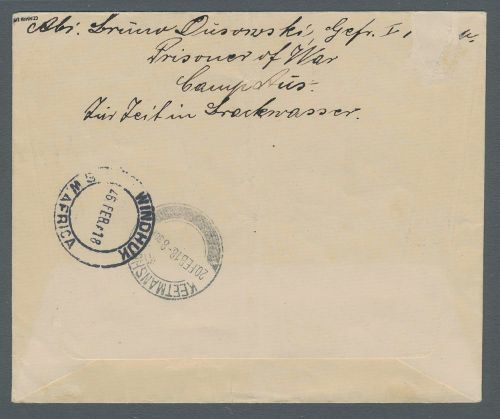 Abs. Bruno Dusowski, Gefr. I,
Prisoner of War
Camp Aus.
Zur Zeit in Brackwasser.
WINDHUK
26 FEB 18
S.W. AFRICA
20 FEB 18